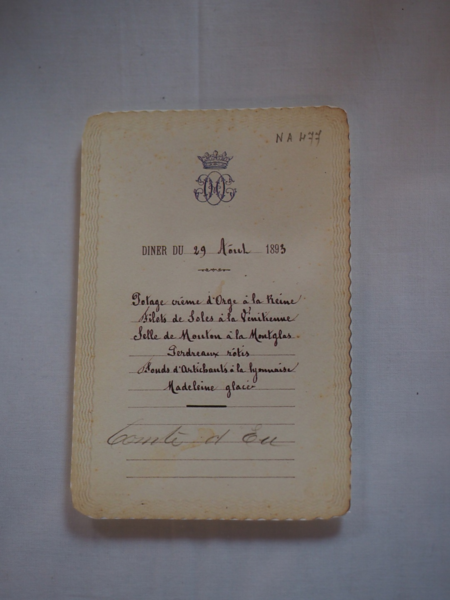 NA 477
DINER DU 29 Aôut 1893
Potage crème d'Orge à la Reine
Filets de Soles à la Vénitienne
Selle de Mouton à la Montglas
Perdreaux rôtis
Fonds d'Artichauts à la lyonnaise
Madeleine glacée
Comte d'Eu